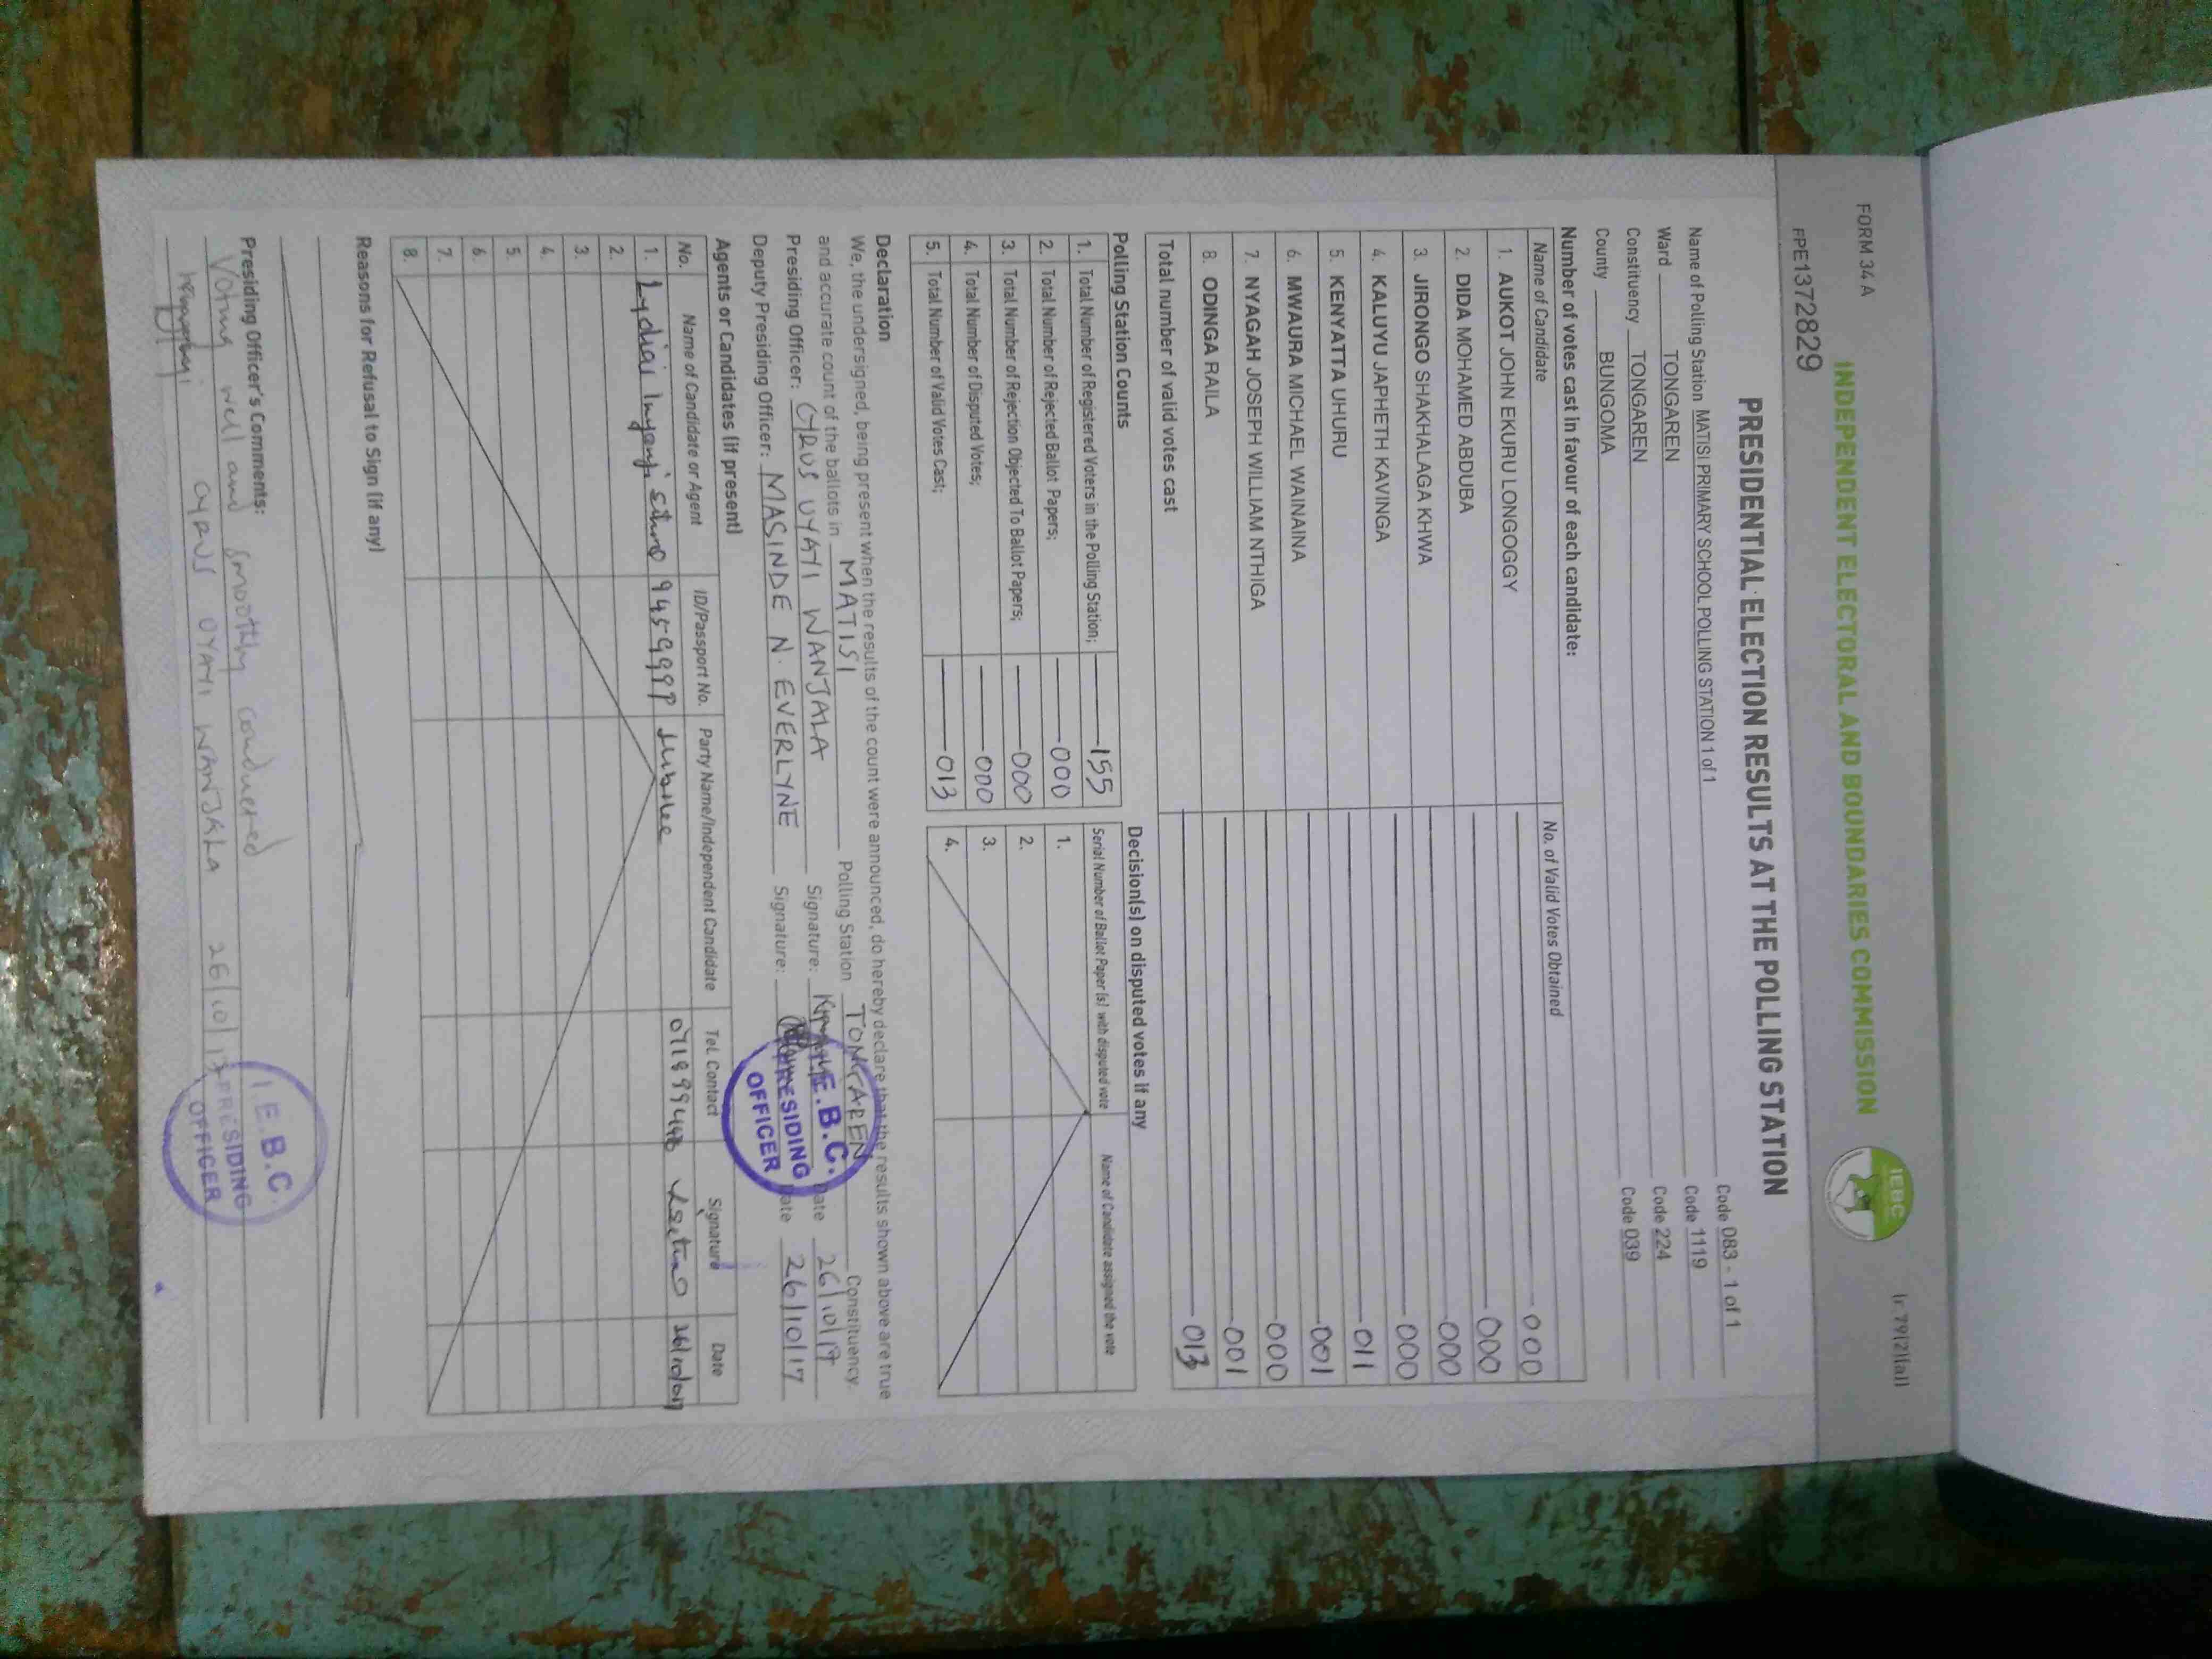 FORM 34 A
(r 79(2)(a))
INDEPENDENT ELECTORAL AND BOUNDARIES COMMISSION
IEBC
FPE1372829
PRESIDENTIAL ELECTION RESULTS AT THE POLLING STATION
Name of Polling Station MATISI PRIMARY SCHOOL POLLING STATION 1 of 1 Code 083 - 1 of 1
Ward TONGAREN Code 1119
Constituency TONGAREN Code 224
County BUNGOMA Code 039
Number of votes cast in favour of each candidate:
Name of Candidate No. of Valid Votes Obtained
1. AUKOT JOHN EKURU LONGOGGY 000
2. DIDA MOHAMED ABDUBA 000
3. JIRONGO SHAKHALAGA KHWA 000
4. KALUYU JAPHETH KAVINGA 000
5. KENYATTA UHURU 011
6. MWAURA MICHAEL WAINAINA 001
7. NYAGAH JOSEPH WILLIAM NTHIGA 000
8. ODINGA RAILA 001
Total number of valid votes cast 013
Polling Station Counts
1. Total Number of Registered Voters in the Polling Station; 155
2. Total Number of Rejected Ballot Papers; 000
3. Total Number of Rejection Objected To Ballot Papers; 000
4. Total Number of Disputed Votes; 000
5. Total Number of Valid Votes Cast; 013
Decision(s) on disputed votes if any
Serial Number of Ballot Paper (s) with disputed vote Name of Candidate assigned the vote
1.
2.
3.
4.
Declaration
We, the undersigned, being present when the results of the count were announced, do hereby declare that the results shown above are true
and accurate count of the ballots in MATISI Polling Station TONGAREN Constituency.
Presiding Officer: CYRUS UYAYI WANJALA Signature: Date 26/10/17
Deputy Presiding Officer: MASINDE N. EVERLYNE Signature: Date 26/10/17
I.E.B.C.
PRESIDING
OFFICER
Agents or Candidates (if present)
No. Name of Candidate or Agent ID/Passport No. Party Name/Independent Candidate Tel. Contact Signature Date
1. Lydiai Jubilee
2.
3.
4.
5.
6.
7.
8.
Reasons for Refusal to Sign (if any)
Presiding Officer's Comments:
Voting well and smoothly conducted
CYRUS UYAYI WANJALA 26/10/17
I.E.B.C.
PRESIDING
OFFICER